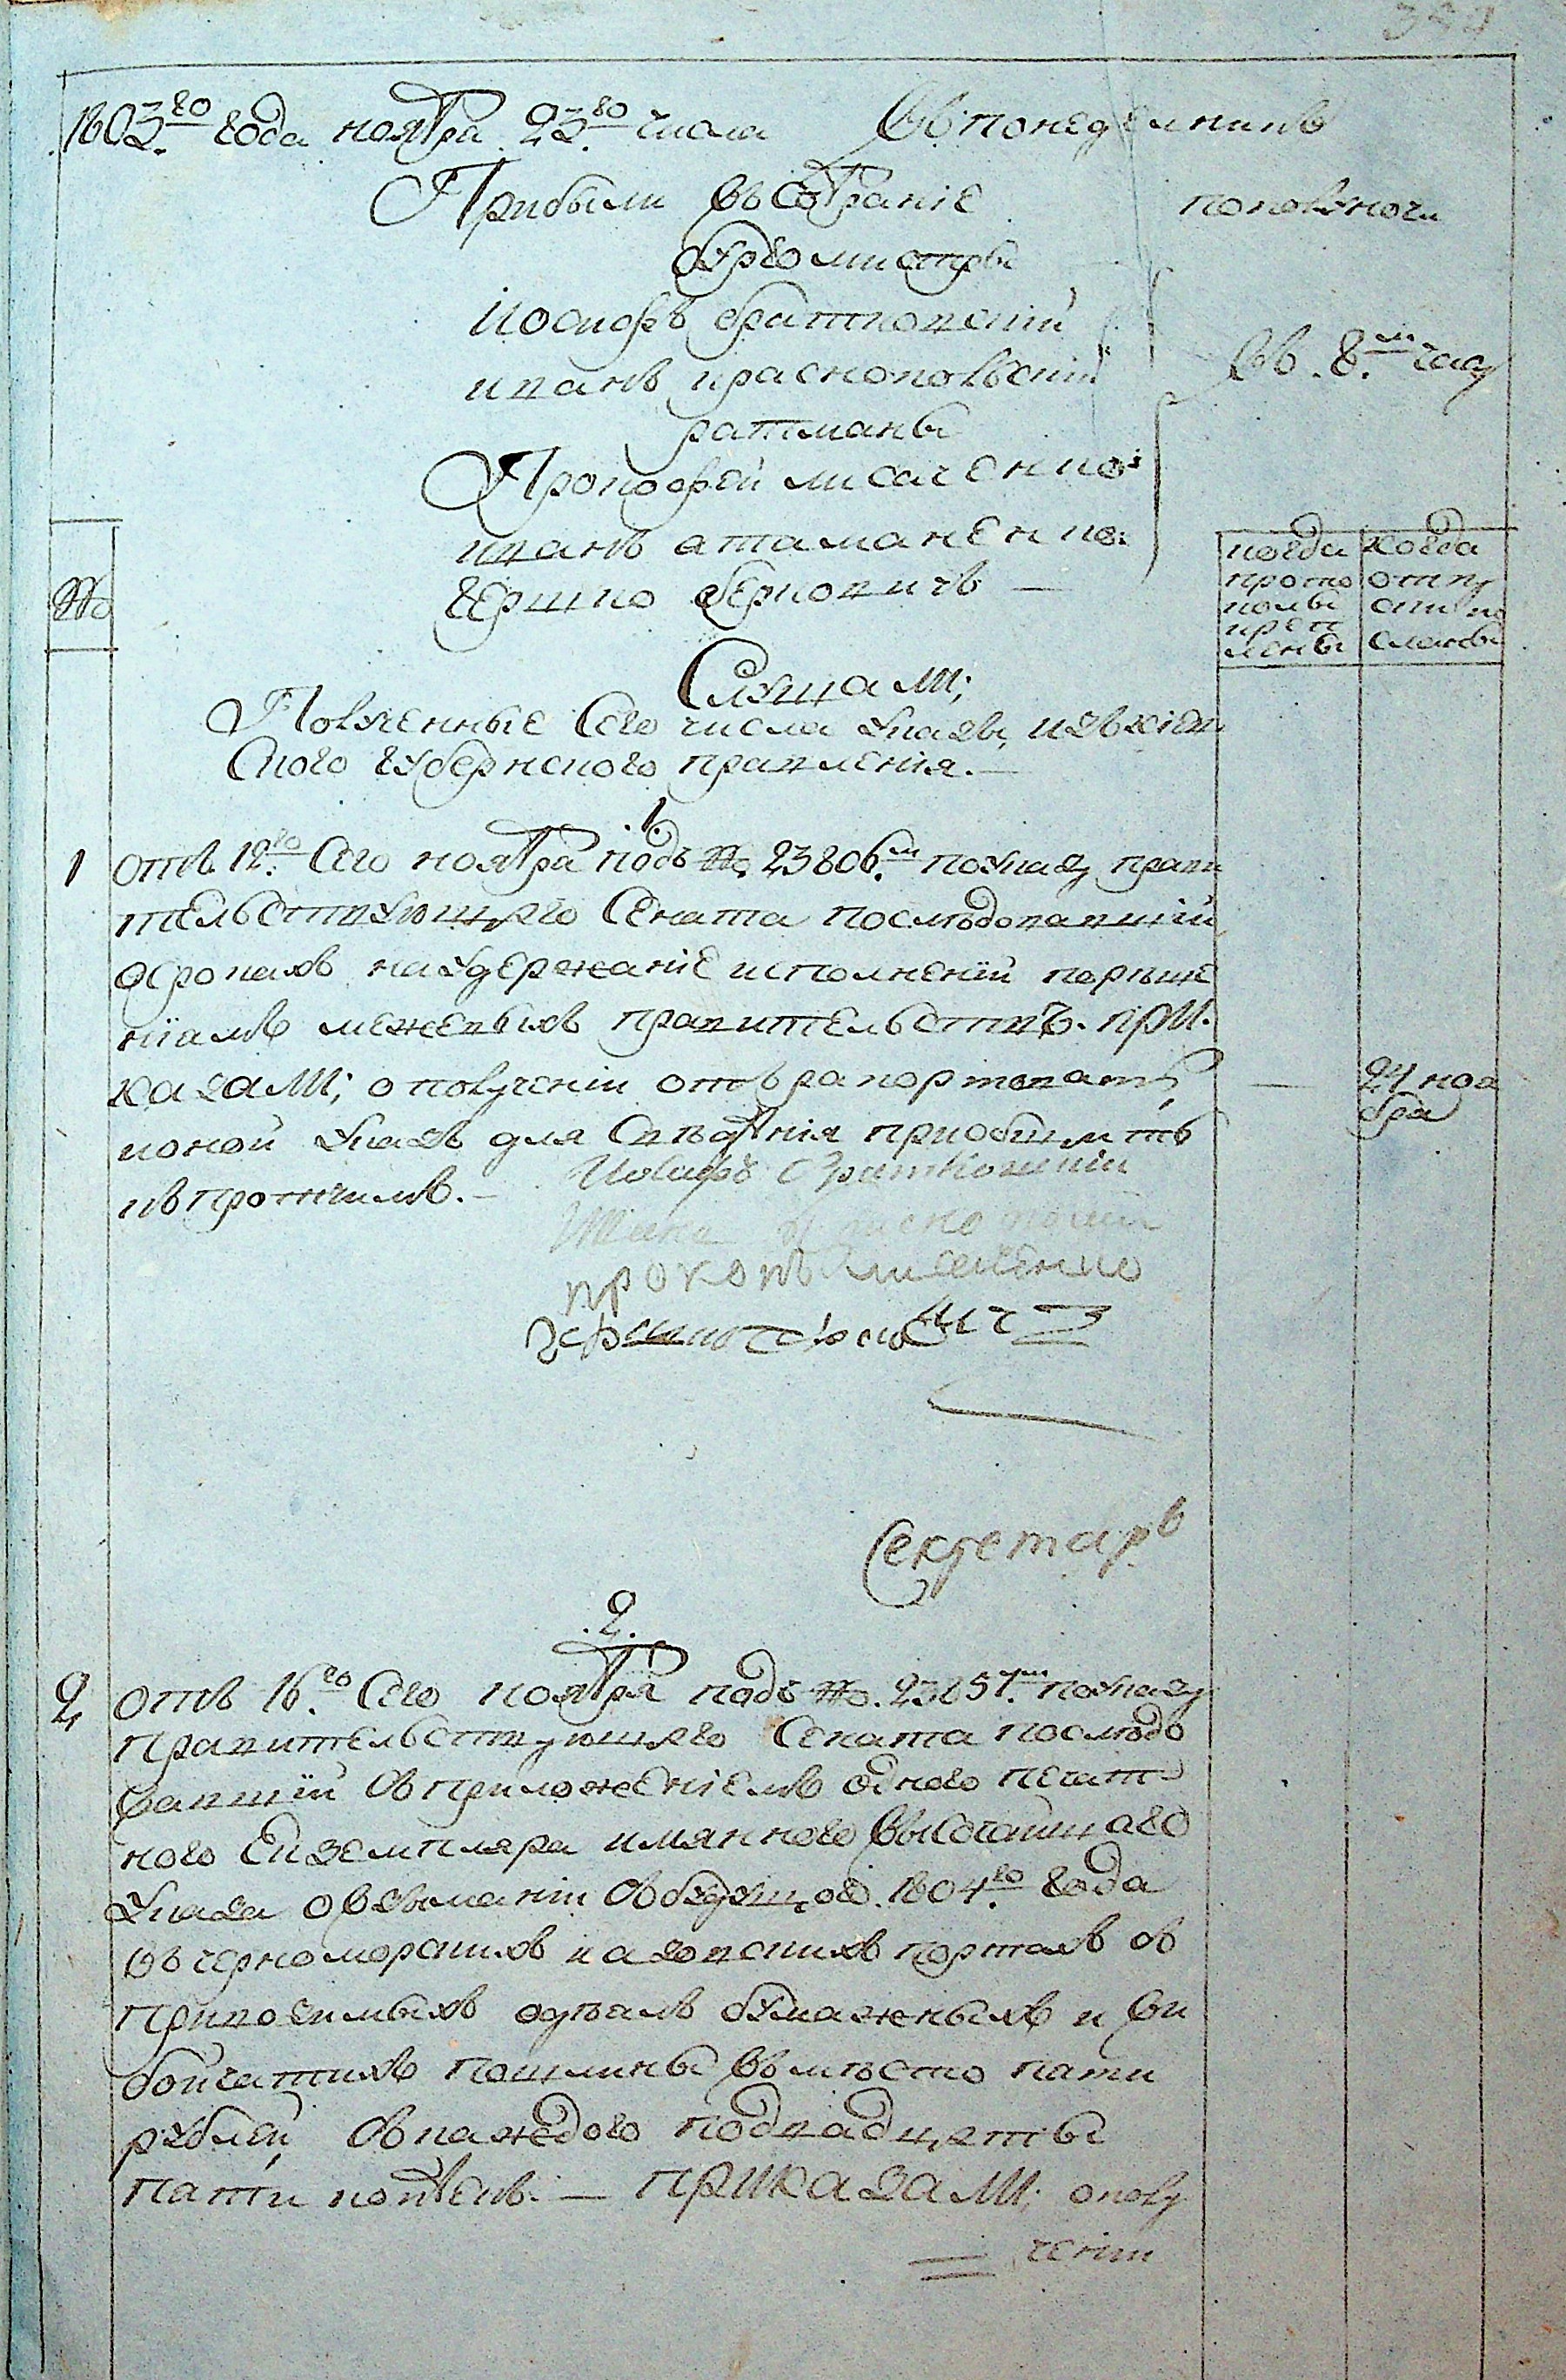 1803.го года ноября 23.го числа
Въ понеделникъ
Прибыли въ собрание
пополуночи
бургомистры
Иосифъ братковский
иванъ краснопольский
въ 8.м часу
ратманы
Прокофей лисаченко
иванъ атаманенко:
гершко беркович —
№
когда протоколы креплены
когда отпуск послан
Слушали;
Полученные Сего числа указы, изъ киев
Ского губернского правления. —
1.
1 отъ 12.го Сего ноября подъ № 23806.м по указу прави
тельствующаго Сената последовавший
о срокахъ на удержание исполнений по реше
ниамъ межевыхъ правительствъ. при.
казали; о получении отърапортовать,
и оной указъ для Сведения приобщить
къ протчимъ. —
24 ноя
бря
Иосифъ Братковский
прокопъ лисаченко
Секретарь
.2.
2 отъ 16.го Сего ноября подъ №. 23857.м по указу
Правительствующаго Сената последо
вавший съ приложениемъ одного печат
ного Екземпляра имянного высочайшаго
указа о взымании съ будущаго 1804.го года
въ черноморскихъ и азовскихъ портахъ съ
привозимыхъ одеалъ бумажныхъ и вы
бойчатихъ пошлины въместо пати
рублей, съ каждого по двадцяты
пати копеекъ. — приказали; о полу
чении